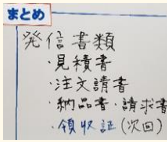 まとめ
発信書類
・見積書
・注文請書
・納品書・請求書
・領収証(次回)